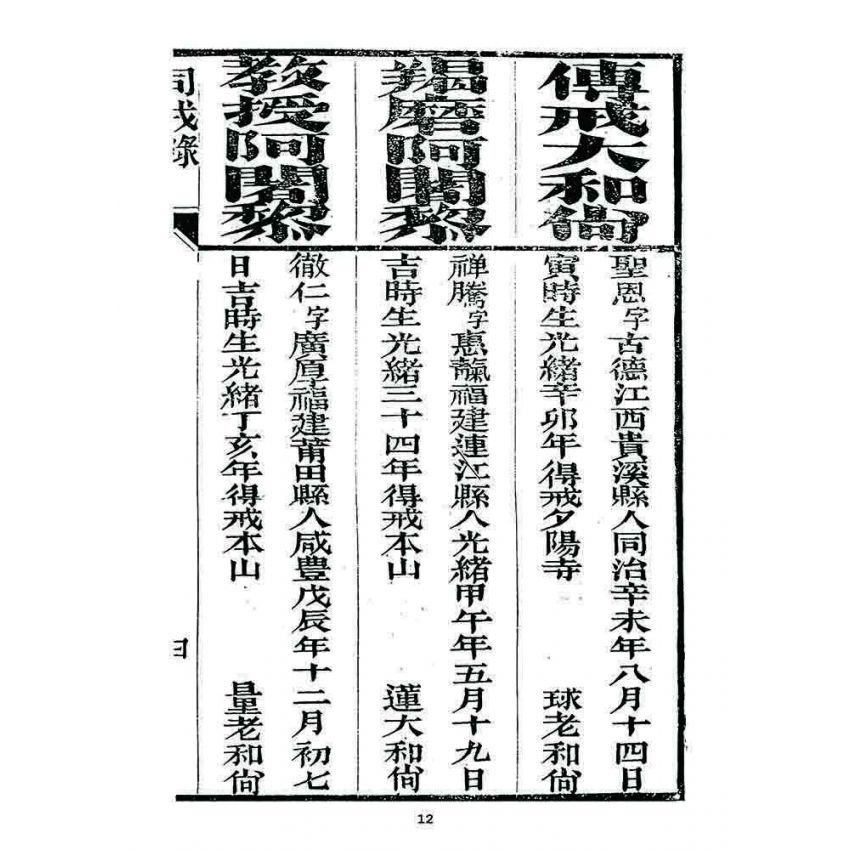 傳戒大和尙
聖恩字古德江西貴溪縣人同治辛未年八月十四日
寅時生光緒辛卯年得戒夕陽寺 球老和尙
羯磨阿闍黎
禅騰字惠靝福建連江縣人光緒甲午年五月十九日
吉時生光緒三十四年得戒本山 蓮大和尙
教授阿闍黎
徹仁字廣厚福建莆田縣人咸豊戊辰年十二月初七
日吉時生光緒丁亥年得戒本山 量老和尙
同戒錄
12